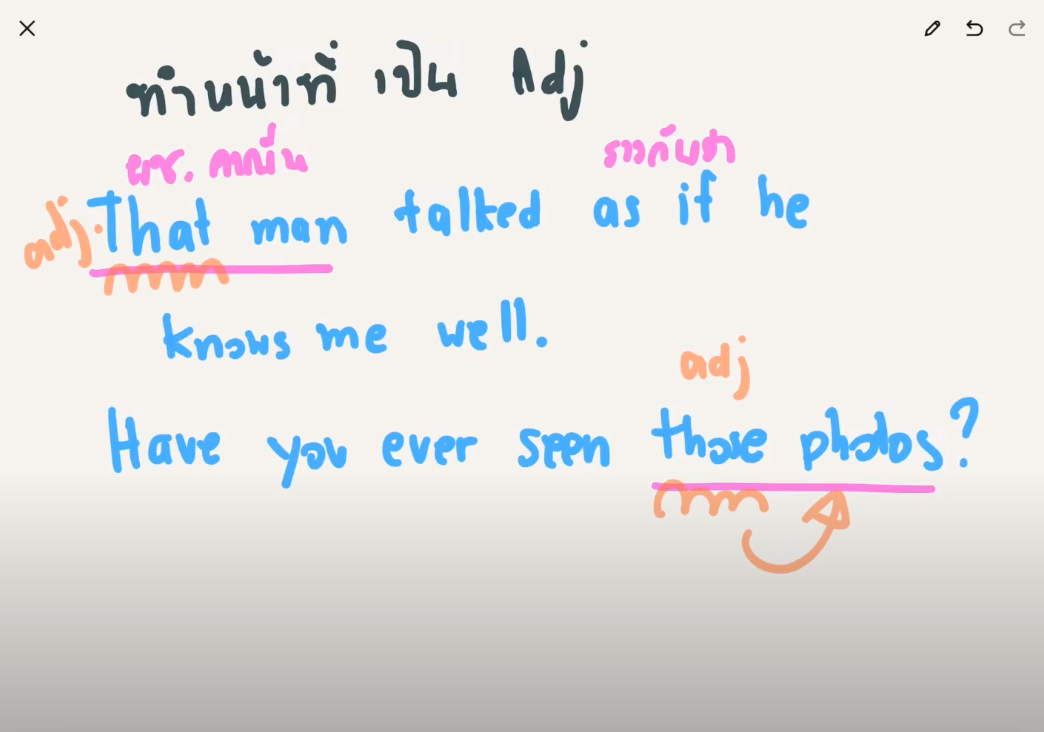 ทำหน้าที่ เป็น Adj
ผช. คนนั้น ราวกับว่า
adj. That man talked as if he
knows me well.
adj
Have you ever seen those photos?